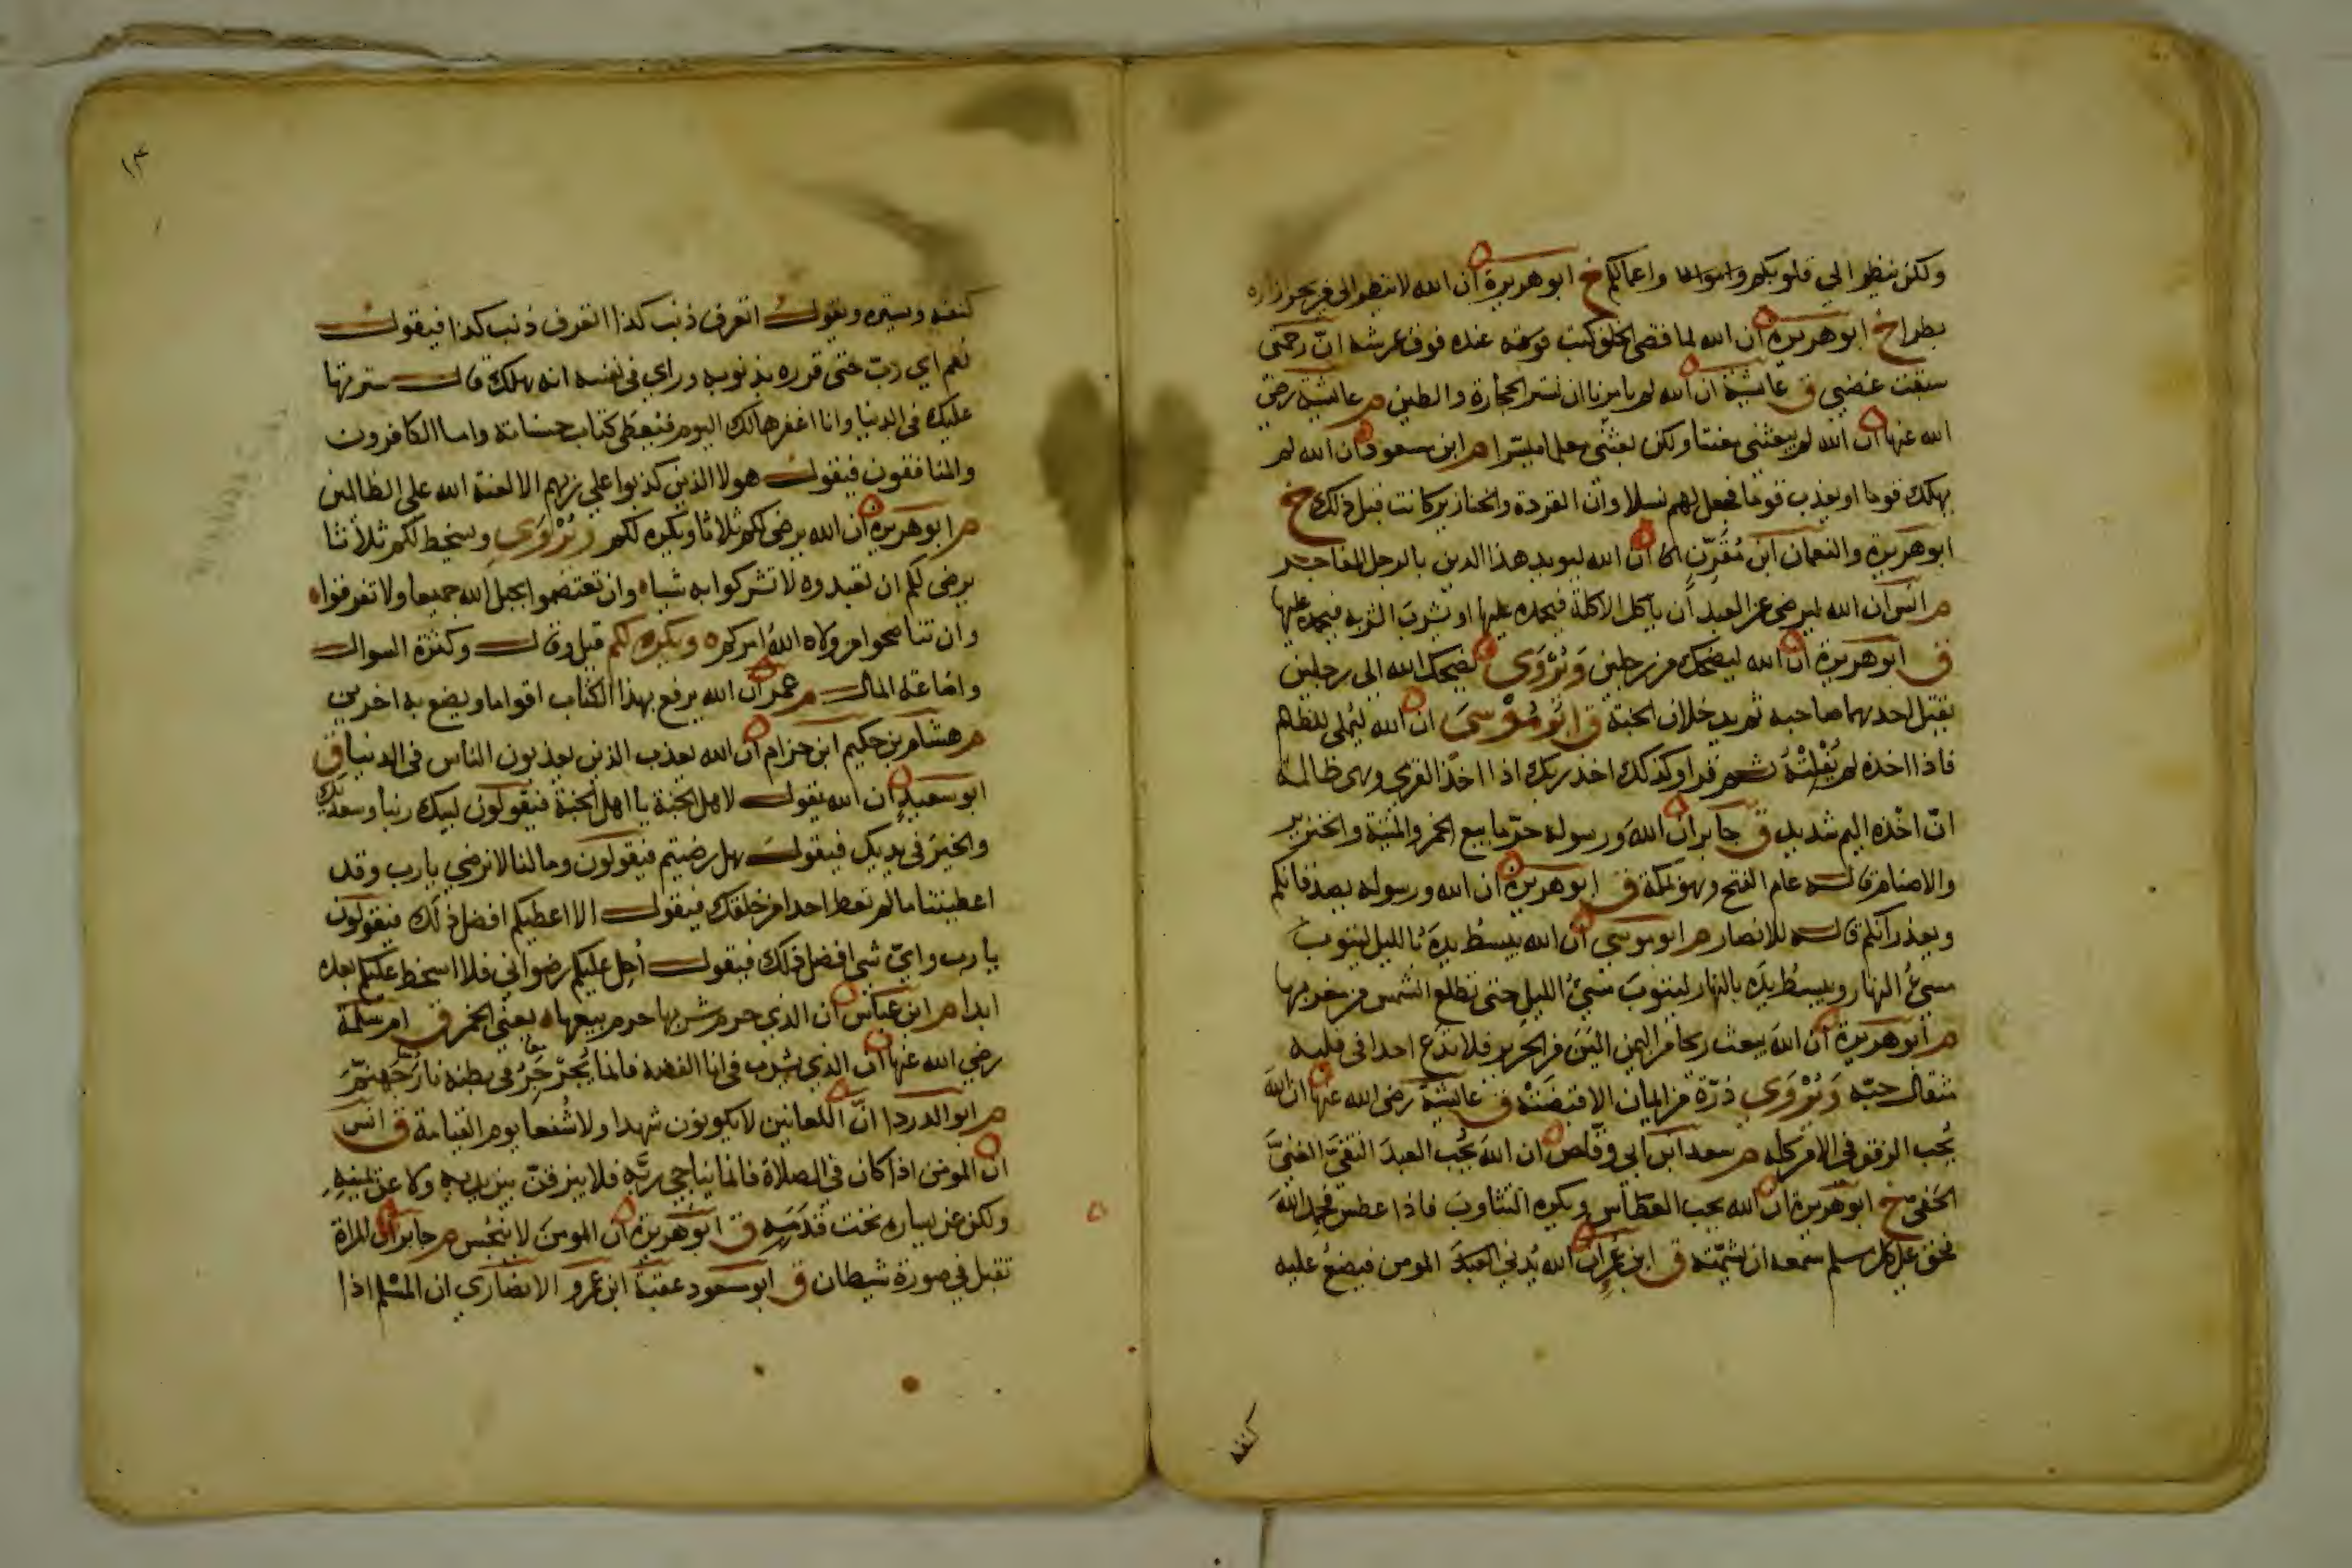 ولكن ينظر الي قلوبكم واعمالكم خ ابو هريرة ان الله لا ينظر الى من يجر ازاره
بطرا خ ابو هريرة ان الله لما قضى الخلق كتب عنده فوق عرشه انّ رحمتى
سبقت غضبي ق عائشة ان الله لم يامرنا ان نستر الحجارة والطين م عائشة رضى
الله عنها ان الله لم يبعثنى معنتا ولكن بعثنى معلما ميسّرا م ابن مسعود ان الله لم
يهلك قوما او يعذب قوما فجعل لهم نسلا وانّ القردة والخنازير كانت قبل ذلك خ
ابو هريرة والنعمان ابن مُقَرِّن ان الله ليويد هذا الدين بالرجل الفاجر
م انس ان الله ليرضى عن العبد أن ياكل الاكلة فيحمده عليها او يشرب الشربه فيحمده عليها
ق ابو هريرة ان الله ليضحك من رجلين وَيُرْوَى يضحك الله الى رجلين
يقتل احدهما صاحبه ثم يدخلان الجنة ق ابُو مُوْسَى ان الله ليُملى للظالم
فاذا اخذه لم يُفْلِتْهُ ثم قرا وكذلك اخذ ربك اذا اخذ القرى وهى ظالمة
انّ اخْذه اليم شديد ق جابر ان الله ورسوله حرّما بيع الخمر والميتة والخنزير
والاصنام قاله عام الفتح وهو بمكة ق ابو هريرة ان الله ورسوله يصدقانكم
ويعذرانكم قاله للانصار م ابو موسى ان الله يبسُط يدَه بالليل ليتوبَ
مسيءُ النهار ويبسُطُ يدَه بالنهار ليتوبَ مسيءُ الليل حتى تطلع الشمس من مغربها
م ابو هريرة ان الله يبعث ريحا من اليمن الينَ من الحرير فلا تدَع احدا فى قلبه
مثقال حبّة وَيُرْوَى ذرّة من ايمان الا قبضَتْه ق عائشة رضى الله عنها ان الله
يُحب الرفق فى الامر كله م سعد ابن ابى وقاص ان الله يُحب العبدَ التقىَّ الغنىَّ
الخفىّ خ ابو هريرة ان الله يحب العطاس ويكره التثاوب فاذا عطس فحمد اللهَ
فحق على كل مسلم سمعه ان يشمّته ق ابن عُمر ان الله يُدني العبدَ المومن فيضعُ عليه
كنفه
١٣
كنفه ويستره ويقول اتعرف ذنب كذا اتعرف ذنب كذا فيقول
نعم اي ربّ حتى قرره بذنوبه وراي فى نفسه انه هلك قال سترتها
عليك فى الدنيا وانا اغفرها لك اليوم فيُعطى كتاب حسناته واما الكافرون
والمنافقون فيقول هولا الذين كذبوا على ربهم الا لعنة الله على الظالمين
م ابو هريرة ان الله يرضى لكم ثلاثا ويكره لكم ويُرْوَى ويسخط لكم ثلاثا
يرضى لكم ان تعبدوه ولا تشركوا به شيا وان تعتصموا بحبل الله جميعا ولا تفرقوا
وان تناصحوا من ولاه اللهُ امركم ويكره لكم قيل وقال وكثرة السوال
واضاعة المال م عمر ان الله يرفع بهذا الكتاب اقواما ويضع به اخرين
م هشام بن حكيم ابن حزام ان الله يعذب الذين يعذبون الناس فى الدنيا ق
ابو سعيد ان الله يقول لاهل الجنة يا اهل الجنة فيقولون لبيك ربنا وسعديك
والخير فى يديك فيقول هل رضيتم فيقولون وما لنا لا نرضي يا رب وقد
اعطيتنا ما لم تعط احدا من خلقك فيقول الا اعطيكم افضل من ذلك فيقولون
يا رب وايّ شى افضل من ذلك فيقول أحِل عليكم رضواني فلا اسخط عليكم بعده
ابدا م ابن عباس ان الذي حرم شربها حرم بيعها يعني الخمر ق ام سلمة
رضي الله عنها ان الذي يشرب فى انا الفضه فانما يُجَرْجِرُ فى بطنه نارُ جَهنّم
م ابو الدردا انّ اللعانين لا يكونون شهدا ولا شُفعا يوم القيامة ق انس
ان المومن اذا كان فى الصلاة فانما يناجى ربَّه فلا يبزقنّ بين يديه ولا عن يمينه
ولكن عن يساره تحت قدَمِه ق ابو هريرة ان المومنَ لا ينجُس م جابر ان المراة
تقبل في صورة شيطان ق ابو مسعود عقبة ابن عَمرو الانصاري ان المسْلم اذا